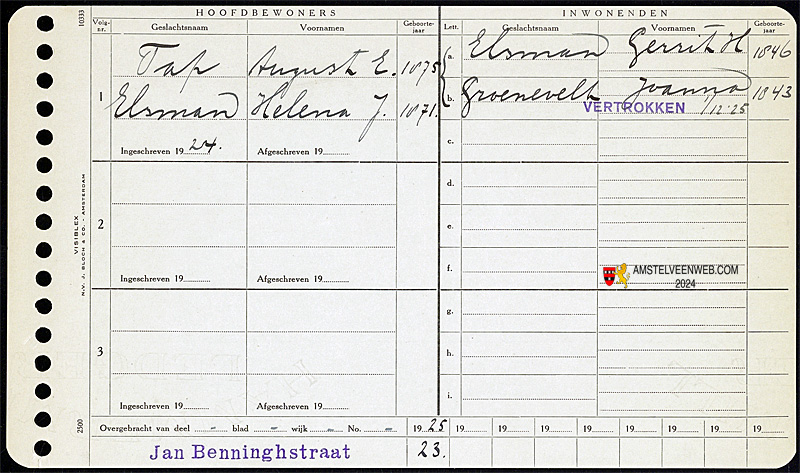 HOOFDBEWONERS
INWONENDEN
Volg-nr.
Geslachtsnaam
Voornamen
Geboorte-jaar
Lett.
Geslachtsnaam
Voornamen
Geboorte-jaar
10333
1
Tap
August E.
1875
Elsman
Helena J.
1871.
Ingeschreven 1924.
Afgeschreven 19
a.
Elsman
Gerrit H
1846
b.
Groenevelt
Joanna
1843
VERTROKKEN
1/12 '25
c.
2
Ingeschreven 19
Afgeschreven 19
d.
e.
f.
AMSTELVEENWEB.COM
2024
3
Ingeschreven 19
Afgeschreven 19
g.
h.
i.
VISIBLEX
N.V. J. BLOCH & CO. - AMSTERDAM
2500
Overgebracht van deel - blad - wijk - No. -
1925
19
19
19
19
19
19
19
19
19
Jan Benninghstraat
23.